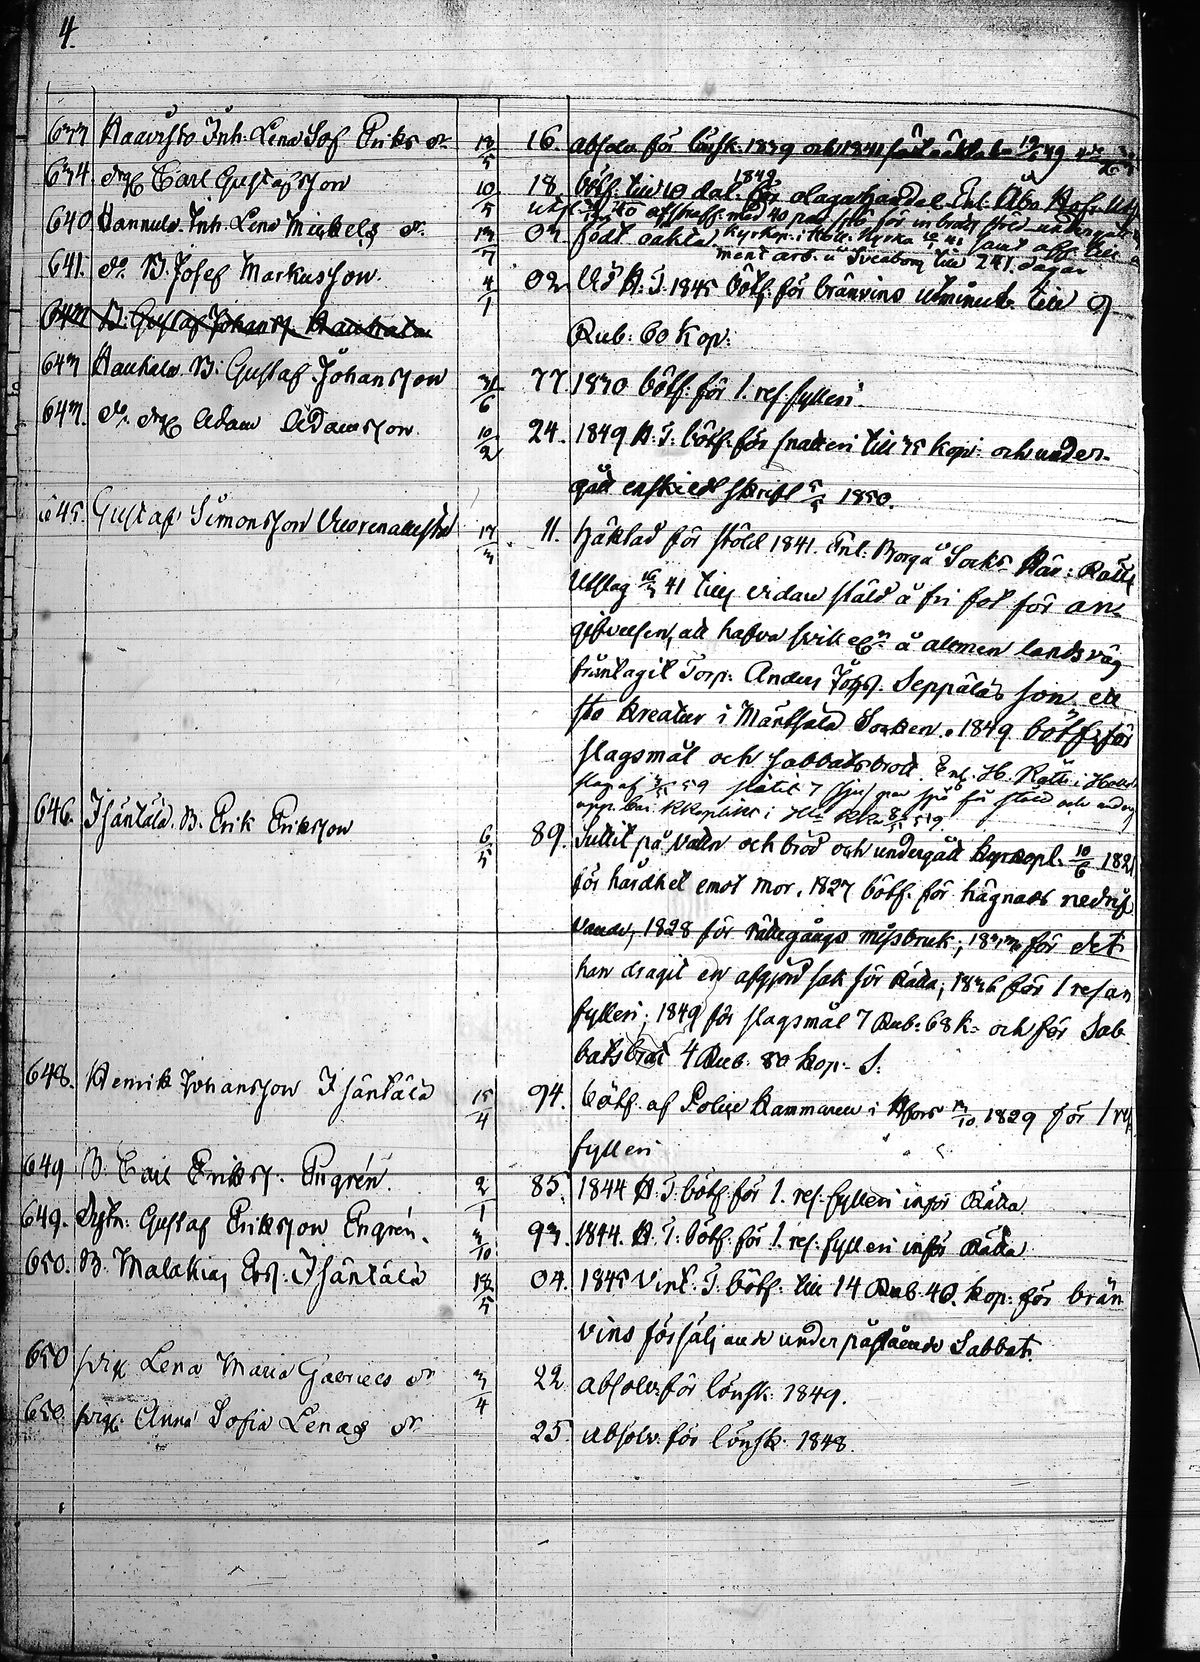 4.
633 Haavisto Inh. Lena Sof. Eriks dr 18/5 16. absolv. för lönsk. 1839 och 1841
634. drg Carl Gustafsson 10/5 18. bötf. till 10 dal. 1842 för olaga handel Enl. Åbo Hof. Utsl.
40 afstraff. med 40 par spö för inbrotts stöld undergått
640 Hannula Inh. Lena Mickels dr. 13/7 03 födt oäkta kyrkopl. i Holl. Kyrka samt aff. till
ment arb. i Sveaborg till 241 dagar
641. do. B. Josef Markusson 4/1 02 Vid H. T. 1845 bötf. för bränvins utminut. till 9
Rub: 60 Kop:
643 B: Gustaf Johanss. Hauhala
643 Hauhala B: Gustaf Johansson 31/6 77. 1830 bötf. för 1. res. fylleri.
643. do. drg Adam Adamsson 10/2 24. 1849 H. T. bötf. för snatteri till 75 kop: och under-
gått enskildt skrift 5/5 1850.
645. Gustaf Simonsson Vuorenalusta 17/3 11. häktad för stöld 1841. Enl. Borgå Sockn Här: Rätts
Utslag 16/3 41 till vidare stäld å fri fot för an-
gifvelsen, att hafva å allmen landsväg
fråntagit Torp: Anders Johss. Seppäläs son ett
sto kreatur i Mäntsälä Socken. 1849 bötf. för
slagsmål och sabbatsbrott. Enl. H. Rätts i Hollola
slag af 59 slitit 7 sju par spö för stöld och undergg
upp. bar. kkoplikt i
646. Isäntälä B. Erik Eriksson 6/5 89. Suttit på vatten och bröd och undergått kyrkopl. 10/6 1821
för hårdhet emot mor. 1827 bötf. för hägnads nedrif
vande, 1828 för rättegångs missbruk; 1833 för det
han dragit en afgjord sak för Rätta; 1836 för 1 resan
fylleri; 1849 för slagsmål 7 Rub: 68 k: och för Sab
batsbrott 4 Rub. 80 kop. S.
648. Henrik Johansson Isäntälä 15/4 94. bötf. af Police Kammaren i Hfors 3/10 1829 för 1 res.
fylleri
649 B. Carl Erikss. Engrén. 2/1 85. 1844 H. T. bötf. för 1. res. fylleri inför Rätta
649. Gustaf Eriksson Engrén. 3/10 93. 1844. H. T. bötf. för 1. res. fylleri inför Rätta
650. B. Malakias Ers. Isäntälä 18/5 04. 1845 Vint. T. bötf. till 14 Rub. 40. kop: för brän
vins försäljande under påstående Sabbat.
650 Lena Maria Gabriels dr 3/4 22 absolv. för lönsk. 1849.
650. Anna Sofia Lenas dr 25. absolv. för lönsk. 1848.